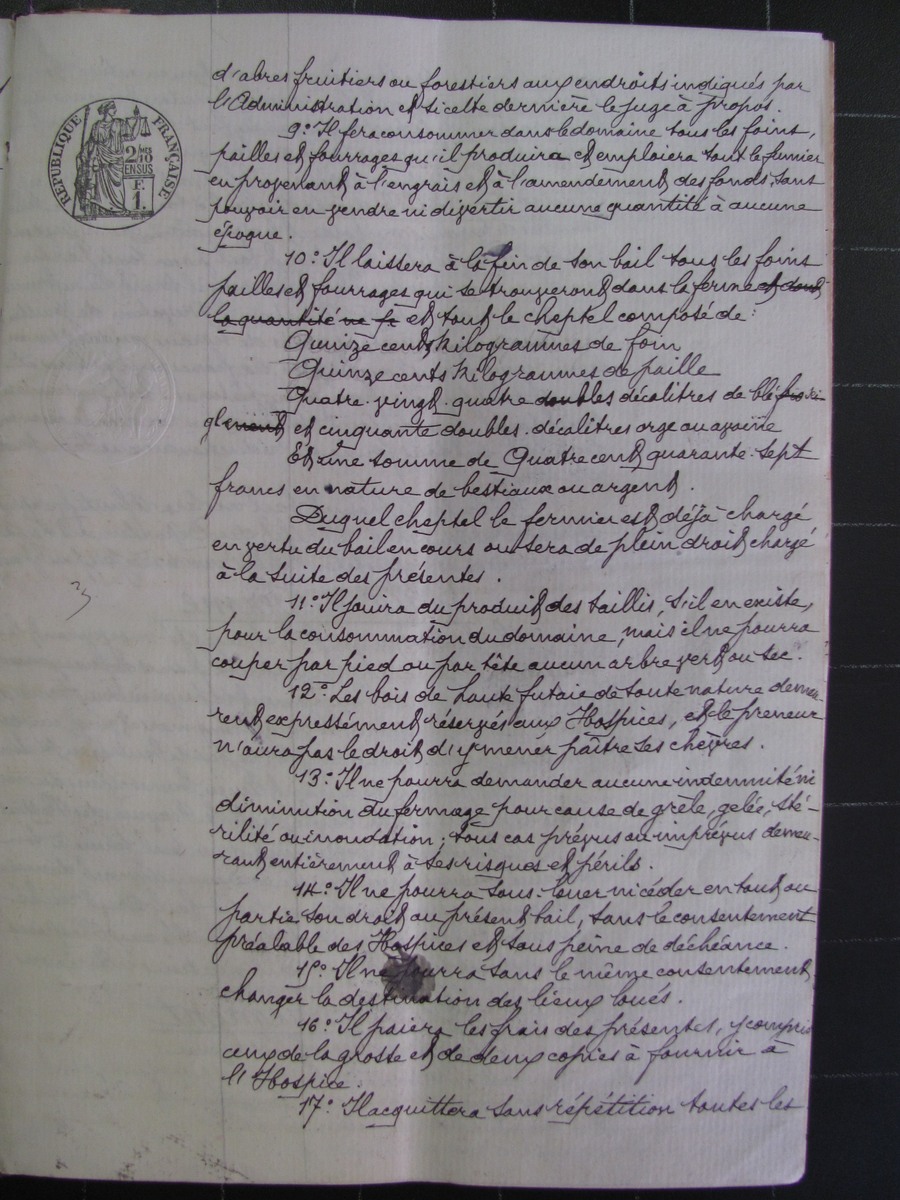 RÉPUBLIQUE FRANÇAISE
2/10
EN SUS
F.
1.
d'abres fruitiers ou forestiers aux endroits indiqués par
l'Administration et si celte dernière le juge à propos.
9° Il fera consommer dans le domaine tous les foins,
pailles et fourrages qu'il produira et emploiera tout le fumier
en provenant à l'engrais et à l'amendement des fonds sans
pouvoir en vendre ni divertir aucune quantité à aucune
époque.
10° Il laissera à la fin de son bail tous les foins
pailles et fourrages qui se trouveront dans la ferme et dont
la quantité ne et tout le cheptel composé de:
Quinze cents kilogrammes de foin
Quinze cents kilogrammes de paille
Quatre-vingt-quatre doubles décalitres de blé
et cinquante doubles-décalitres orge ou avoine
Et une somme de Quatre cent quarante-sept
francs en nature de bestiaux ou argent.
Duquel cheptel le fermier est déjà chargé
en vertu du bail en cours ou sera de plein droit chargé
à la suite des présentes.
11° Il jouira du produit des taillis, s'il en existe,
pour la consommation du domaine, mais il ne pourra
couper par pied ou par tête aucun arbre vert ou sec.
12° Les bois de haute futaie de toute nature demeu-
rent expressément réservés aux Hospices, et le preneur
n'aura pas le droit d'y mener paître ses chèvres.
13° Il ne pourra demander aucune indemnité ni
diminution du fermage pour cause de grêle, gelée, sté-
rilité ou inondation; tous cas prévus ou imprévus demeu-
rant entièrement à ses risques et périls.
14° Il ne pourra sous-louer ni céder en tout ou
partie son droit au présent bail, sans le consentement
préalable des Hospices et sous peine de déchéance.
15° Il ne pourra sans le même consentement,
changer la destination des lieux loués.
16° Il paiera les frais des présentes, y compris
ceux de la grosse et de deux copies à fournir à
l'Hospice.
17° Il acquittera sans répétition toutes les